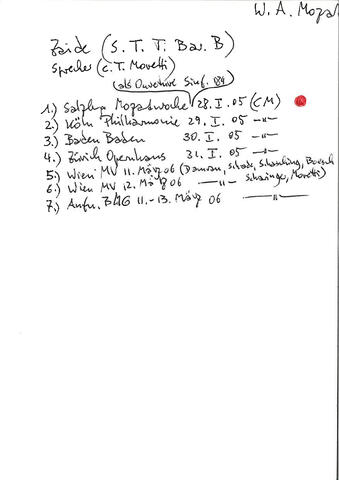 W. A. Mozar
Zaide (S. T. T. Bar. B)
Sprecher (C. T. Moretti)
(als Ouverture Sinf. 184)
1.) Salzburg Mozartwoche 28. I. 05 (CM)
2.) Köln Philharmonie 29. I. 05 -"-
3.) Baden Baden 30. I. 05 -"-
4.) Zürich Opernhaus 31. I. 05 -"-
5.) Wien MV 11. März 06 (Damrau, Schade,
6.) Wien MV 12. März 06 —"— Moretti)
7.) Aufn. BMG 11.-13. März 06 —"—